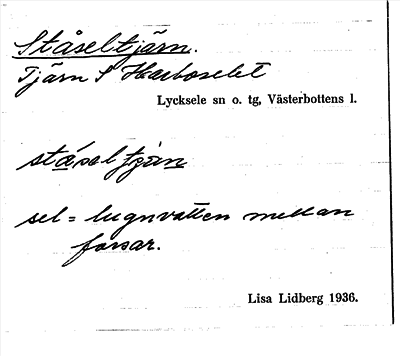 Ståseltjärn.
Tjärn S Harboselet
Lycksele sn o. tg, Västerbottens l.
ståsel tjän
sel = lugnvatten mellan
forsar.
Lisa Lidberg 1936.